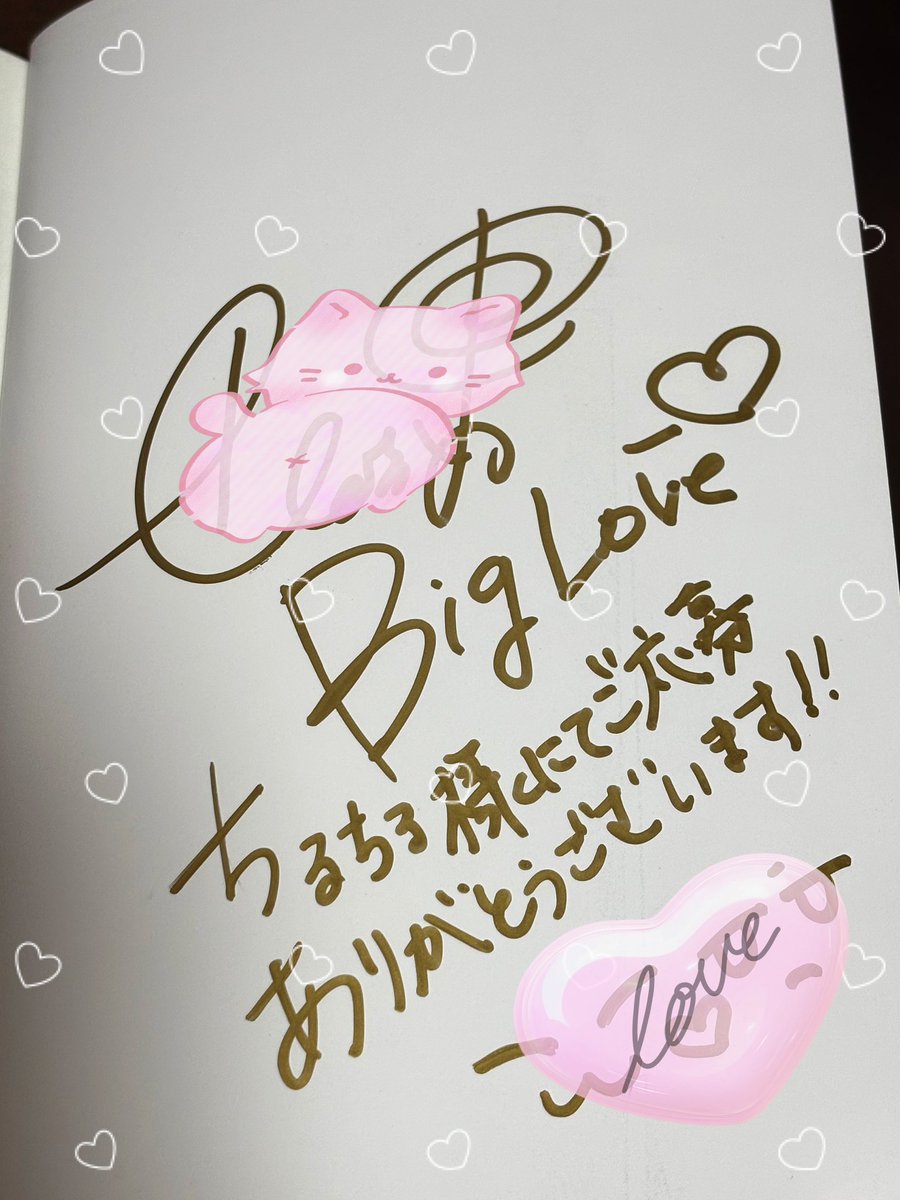 Big Love
ちるちる様にてご応募
ありがとうございます!!
love